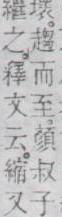 壞。趨而至。顏叔子
繼之。釋文云。縮又